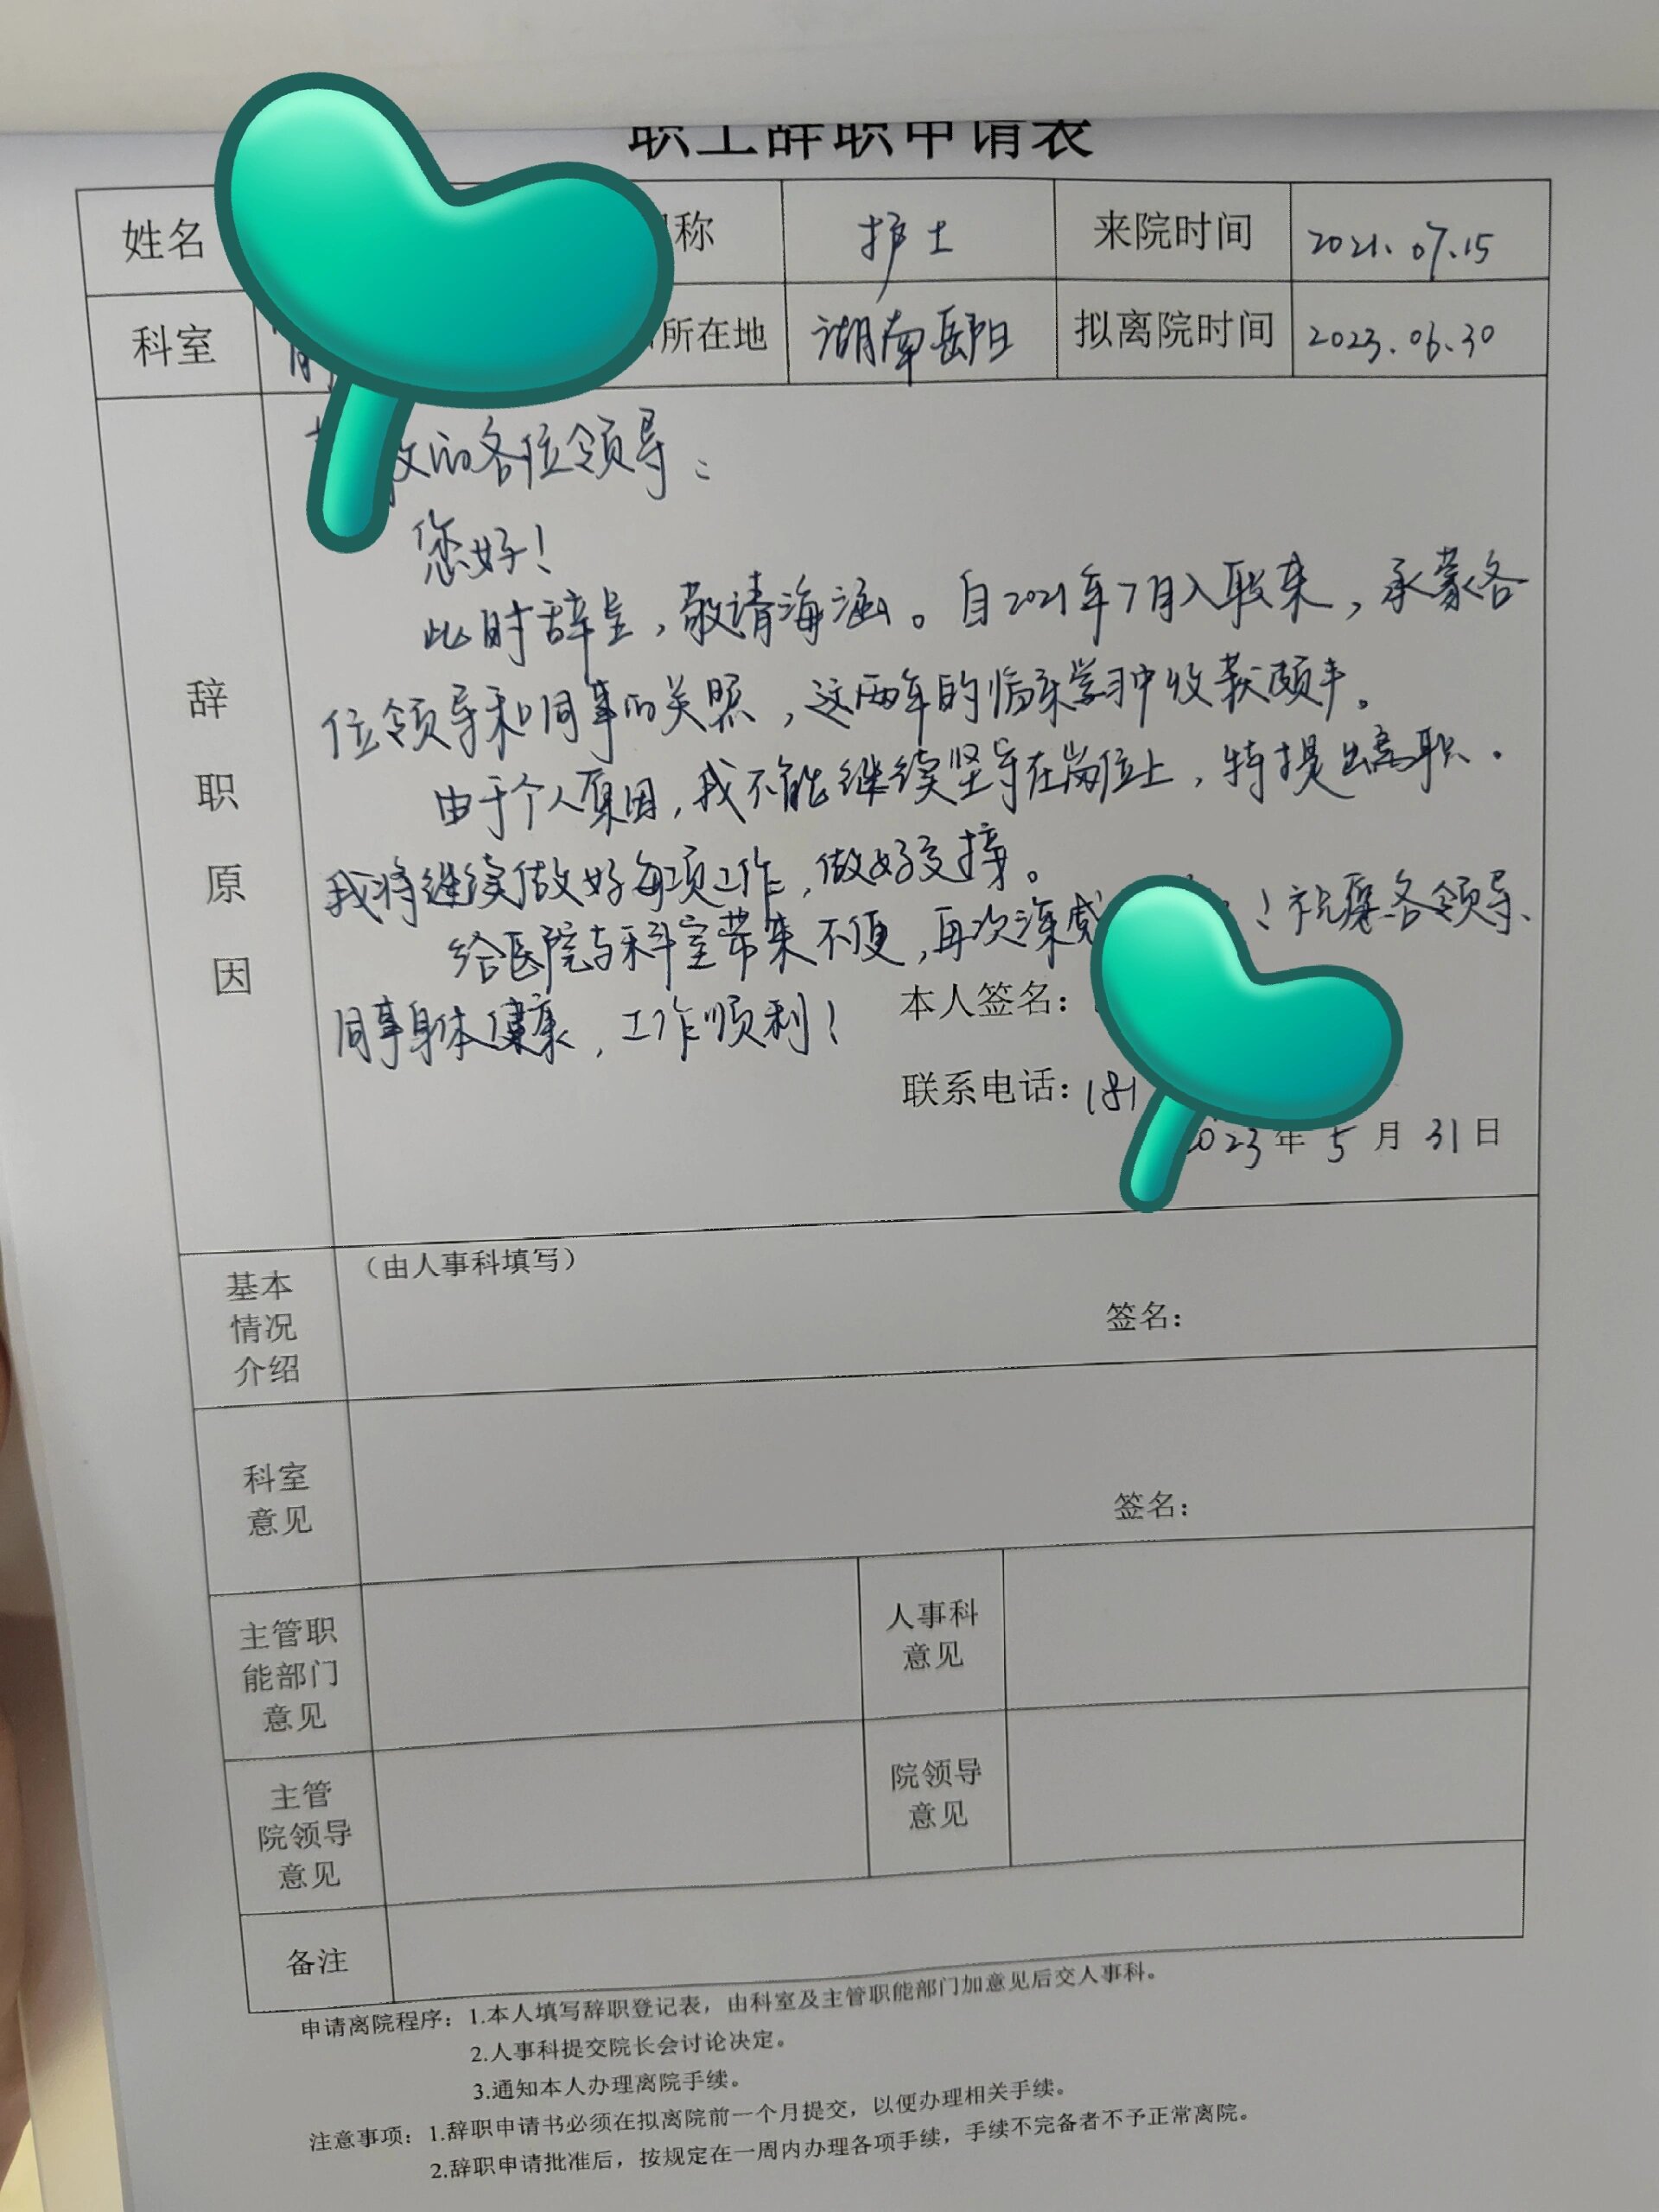 职工辞职申请表
姓名 称 护士 来院时间 2021.07.15
科室 所在地 湖南岳阳 拟离院时间 2023.06.30
辞职原因
的各位领导：
您好！
此时辞呈，敬请海涵。自2021年7月入职来，承蒙各
位领导和同事的关照，这两年的临床学习中收获颇丰。
由于个人原因，我不能继续坚守在岗位上，特提出离职.
我将继续做好每项工作，做好交接。
给医院与科室带来不便，再次深感 ！祝愿各领导、
同事身体健康，工作顺利！
本人签名：
联系电话：181
2023年5月31日
基本情况介绍
（由人事科填写）
签名：
科室意见
签名：
主管职能部门意见 人事科意见
主管院领导意见 院领导意见
备注
申请离院程序：1.本人填写辞职登记表，由科室及主管职能部门加意见后交人事科。
2.人事科提交院长会讨论决定。
3.通知本人办理离院手续。
注意事项：1.辞职申请书必须在拟离院前一个月提交，以便办理相关手续。
2.辞职申请批准后，按规定在一周内办理各项手续，手续不完备者不予正常离院。